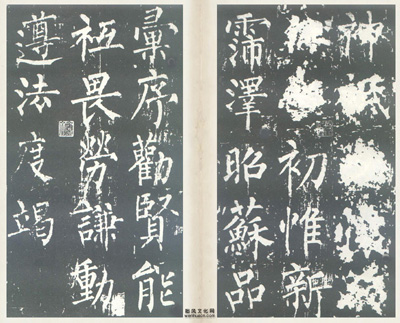 神祇
初惟新
霈澤昭蘇品
彙序勸賢能
祗畏勞謙動
遵法度竭